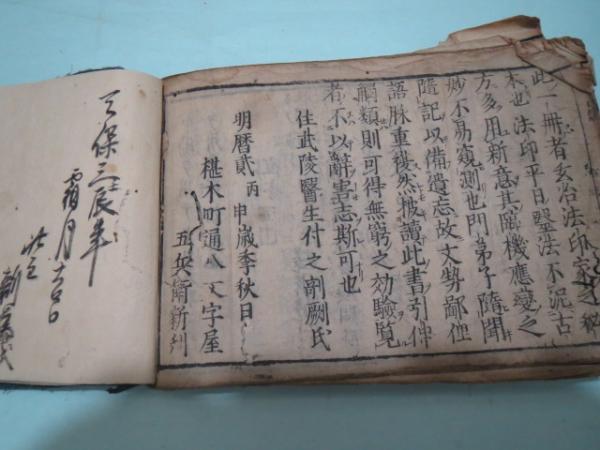 此一冊者玄冶法印家之秘
本也法印平日毉法不泥古
方多用新意其臨機應變之
妙不易窺測也門弟子隨聞
隨記以備遺忘故文勢鄙俚
語脉重複然披讀此書引伸
觸類則可得無窮之効驗覧
者不以辭害志斯可也
住武陵醫生付之剞劂氏
明暦貳丙申歳季秋日
椹木町通八文字屋
五兵衛新刋
天保三辰年
霜月
求之